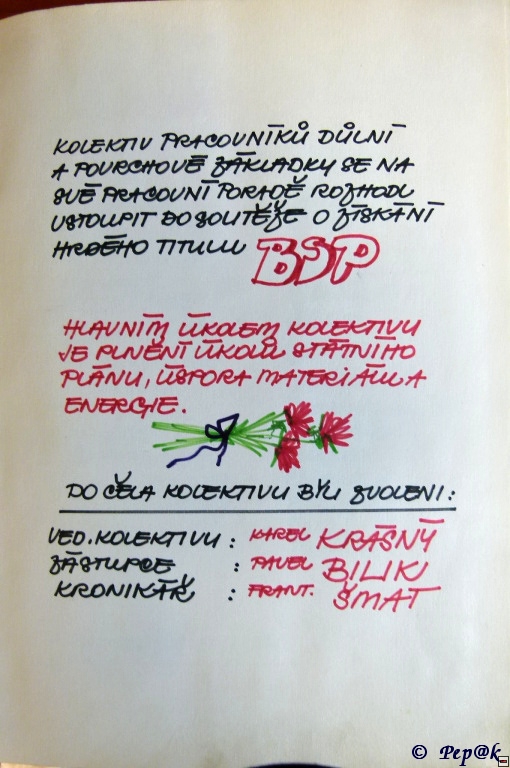 KOLEKTIV PRACOVNÍKŮ DŮLNÍ
A POVRCHOVÉ ZÁKLADKY SE NA
SVÉ PRACOVNÍ PORADĚ ROZHODL
VSTOUPIT DO SOUTĚŽE O ZÍSKÁNÍ
HRDÉHO TITULU BSP
HLAVNÍM ÚKOLEM KOLEKTIVU
JE PLNĚNÍ ÚKOLŮ STÁTNÍHO
PLÁNU, ÚSPORA MATERIÁLU A
ENERGIE.
DO ČELA KOLEKTIVU BYLI ZVOLENI:
VED. KOLEKTIVU : KAREL KRÁSNÝ
ZÁSTUPCE : PAVEL BILIK
KRONIKÁŘ : FRANT. ŠMAT
© Pep@k